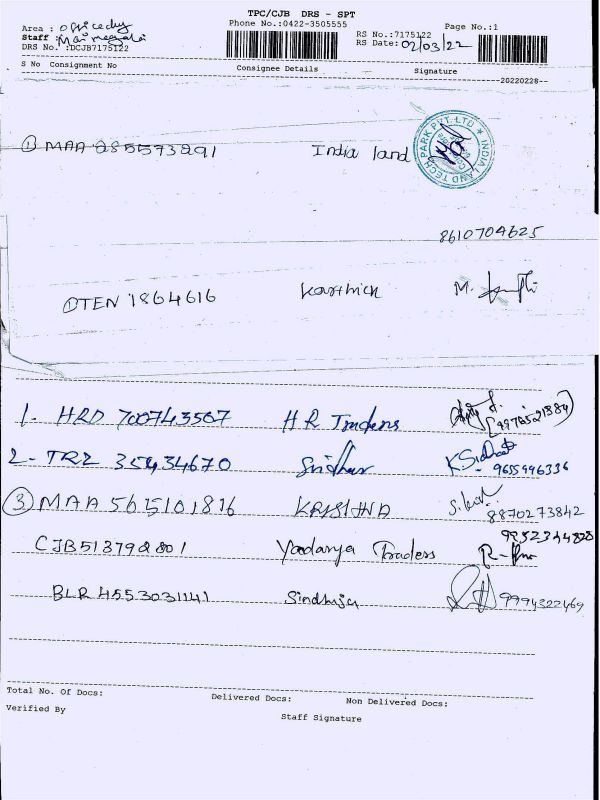 TPC/CJB DRS - SPT
Phone No.:0422-3505555
Page No.:1
Area :
Staff :
DRS No. :DCJB7175122
RS No.:7175122
RS Date: 02/03/22
S No Consignment No Consignee Details Signature
20220228
① MAA 285573291 India land
INDIA LAND TECH PARK PVT. LTD
8610704625
TEN 1864616 Karthick M.
1- HRD 700743567 H R Traders
2- TRZ 35434670 Sridhar K.
9655996336
③ MAA 565101816 KRISHNA
8870273842
CJB513792801 Yadanya Traders
BLR4553031141 Sindhuja 9994322469
Total No. Of Docs: Delivered Docs: Non Delivered Docs:
Verified By Staff Signature